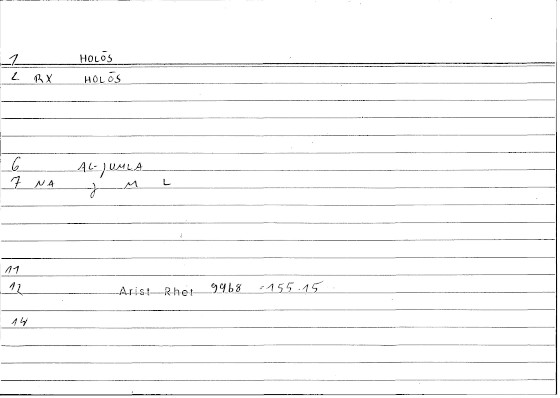 1 HOLŌS
2 RX HOLŌS
6 AL-JUMLA
7 NA j M L
11
12 Arist Rhet 9968 = 155.15
14